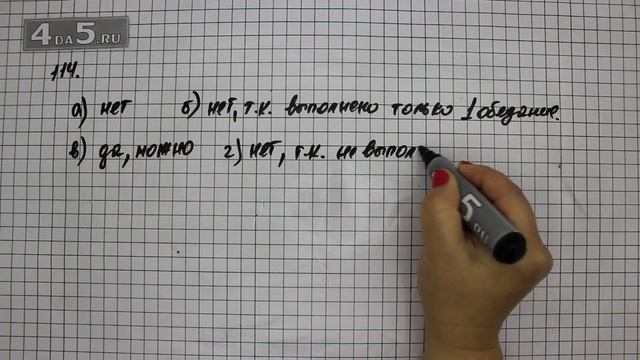 4DA5.RU
114.
а) нет б) нет, т.к. выполнено только 1 обещание.
в) да, можно г) нет, т.к. не выпол
5.RU